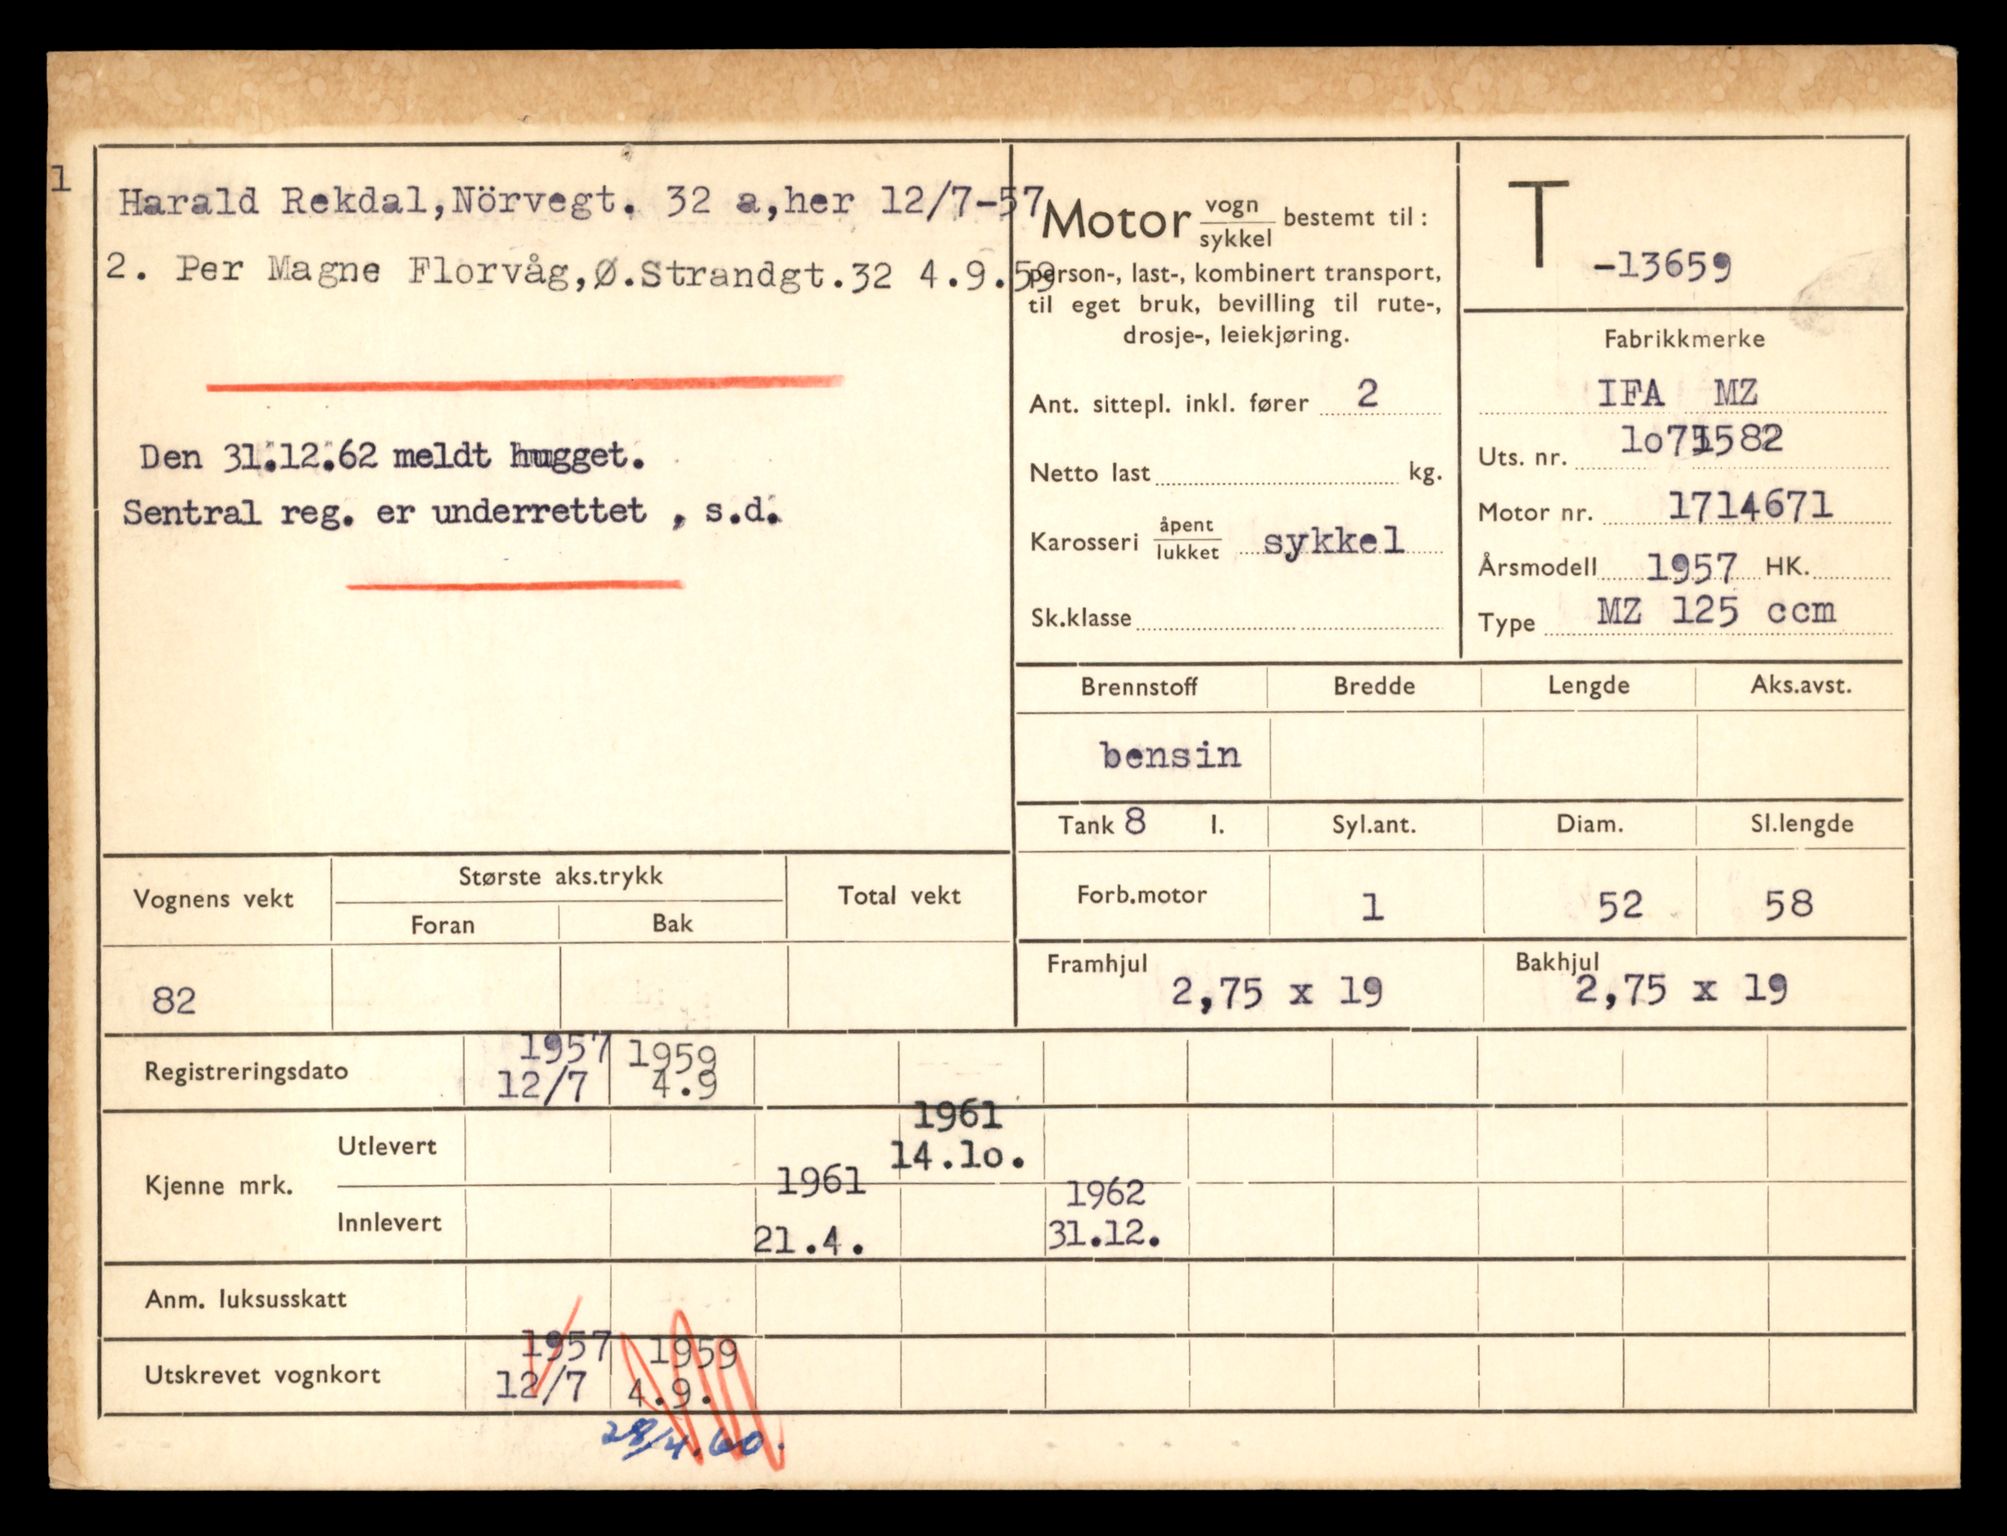 1
Harald Rekdal,Nörvegt. 32 a,her 12/7-57
2. Per Magne Florvåg,Ø.Strandgt.32 4.9.59
Den 31.12.62 meldt hugget.
Sentral reg. er underrettet , s.d.
Motor vogn/sykkel bestemt til:
person-, last-, kombinert transport,
til eget bruk, bevilling til rute-,
drosje-, leiekjøring.
Ant. sittepl. inkl. fører 2
Netto last kg.
Karosseri åpent/lukket sykkel
Sk.klasse
T -13659
Fabrikkmerke
IFA MZ
Uts. nr.
Motor nr. 1714671
Årsmodell 1957 HK.
Type MZ 125 ccm
Brennstoff Bredde Lengde Aks.avst.
bensin
Tank 8 l. Syl.ant. Diam. Sl.lengde
Forb.motor 1 52 58
Framhjul 2,75 x 19 Bakhjul 2,75 x 19
Vognens vekt Største aks.trykk Total vekt
Foran Bak
82
Registreringsdato 1957 12/7 1959 4.9
Kjenne mrk.
Utlevert 1961 14.lo.
Innlevert 1961 21.4. 1962 31.12.
Anm. luksusskatt
Utskrevet vognkort 1957 12/7 1959 4.9.
28/4.60.